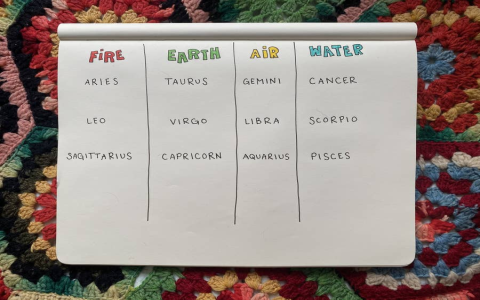 FIRE EARTH AIR WATER
ARIES TAURUS GEMINI CANCER
LEO VIRGO LIBRA SCORPIO
SAGITTARIUS CAPRICORN AQUARIUS PISCES